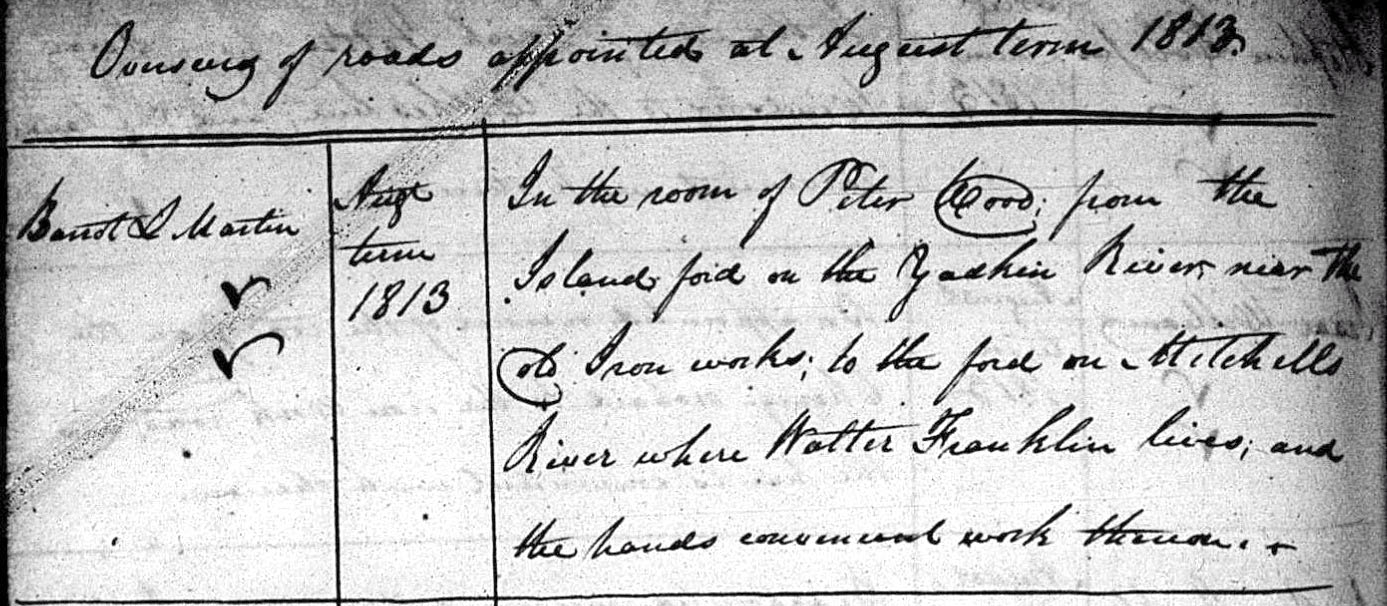 Overseers of roads appointed at August term 1813.
Barrot L Martin
Augt
term
1813
In the room of Peter Hood; from the
Island ford on the Yadkin River, near the
old Iron works; to the ford on Mitchells
River where Walter Franklin lives; and
the hands convenient work thereon. +